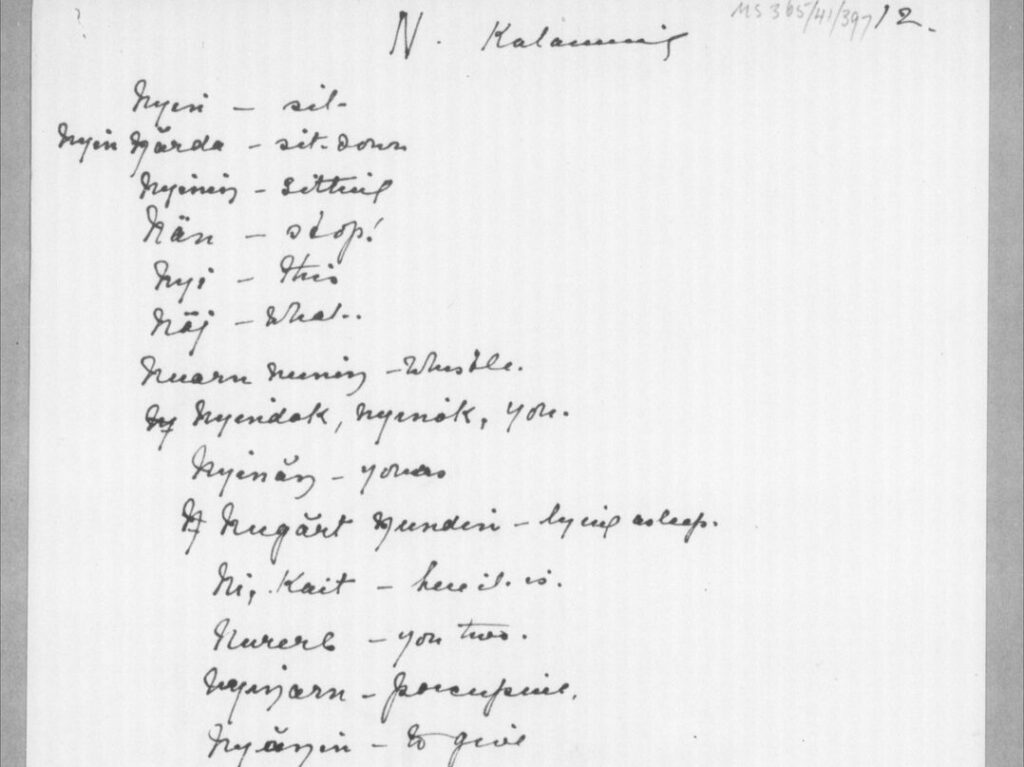 MS 365/41/397/2.
N. Katanning
Nyin – sit
Nyin ŋărda – sit down
Nyiniŋ – sitting
Năn – stop!
Nyi – this
Năj – What.
Nuarn nuniŋ – Whistle.
Nyindok, nyinok, you.
Nyinăŋ – yours
Nugărt ŋundin – lying asleep.
Ni, Kait – here it is.
Nurerb – you two.
Nyiŋarn – porcupine.
Nyăŋin – to give